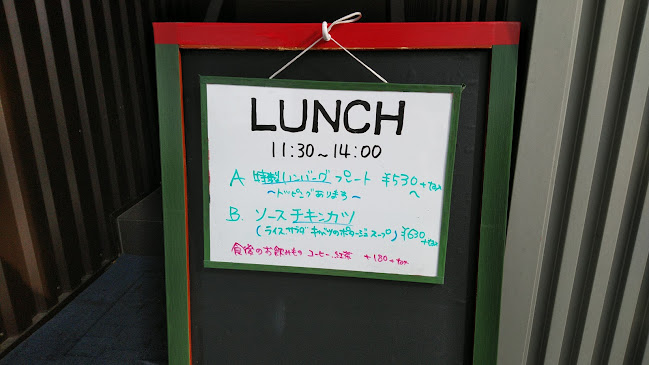 LUNCH
11:30~14:00
A 特製ハンバーグプレート ¥530+tax
~トッピングあります~
B. ソースチキンカツ
(ライス サラダ キャベツのポタージュスープ) ¥630+tax
食後のお飲みもの コーヒー、紅茶 +180+tax